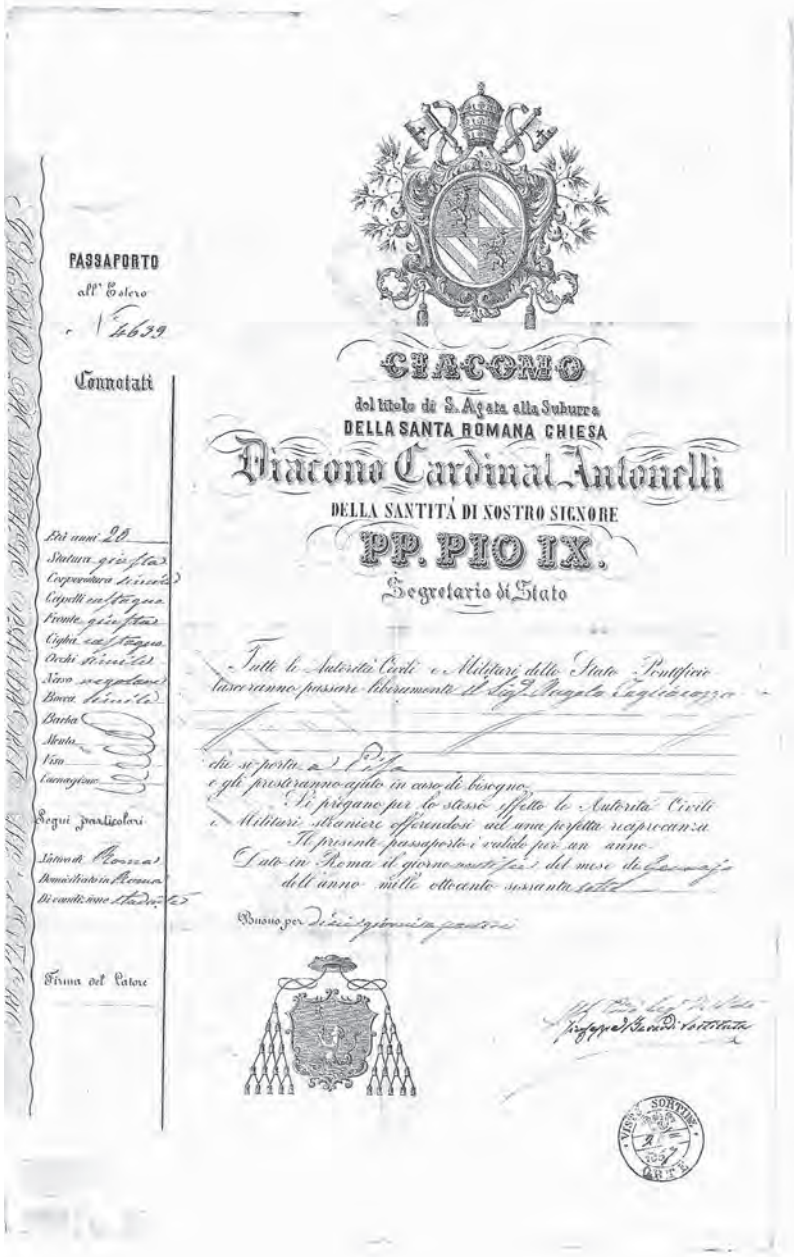 PASSAPORTO
all' Estero
N° 4639
Connotati
Età anni 20
Statura giusta
Corporatura simile
Capelli castagno
Fronte giusta
Ciglia castagno
Occhi simili
Naso regolare
Bocca simile
Barba
Mento
Viso
Carnagione
Segni particolari
Nativo di Roma
Domiciliato in Roma
Di condizione studente
Firma del Latore
GIACOMO
del titolo di S. Agata alla Suburra
DELLA SANTA ROMANA CHIESA
Diacono Cardinal Antonelli
DELLA SANTITÁ DI NOSTRO SIGNORE
PP. PIO IX.
Segretario di Stato
Tutte le Autorità Civili e Militari dello Stato Pontificio
lasceranno passare liberamente il Sig.r Angelo Tagliacozzo
che si porta a Pisa
e gli presteranno ajuto in caso di bisogno
Si pregano per lo stesso effetto le Autorità Civili
e Militari straniere offerendosi ad una perfetta reciprocanza
Il presente passaporto è valido per un anno
Dato in Roma il giorno del mese di Gennajo
dell'anno mille ottocento sessanta sette
Buono per dieci giorni a partire
Sostituto
VISTO SORTIRE
1867
ORTE